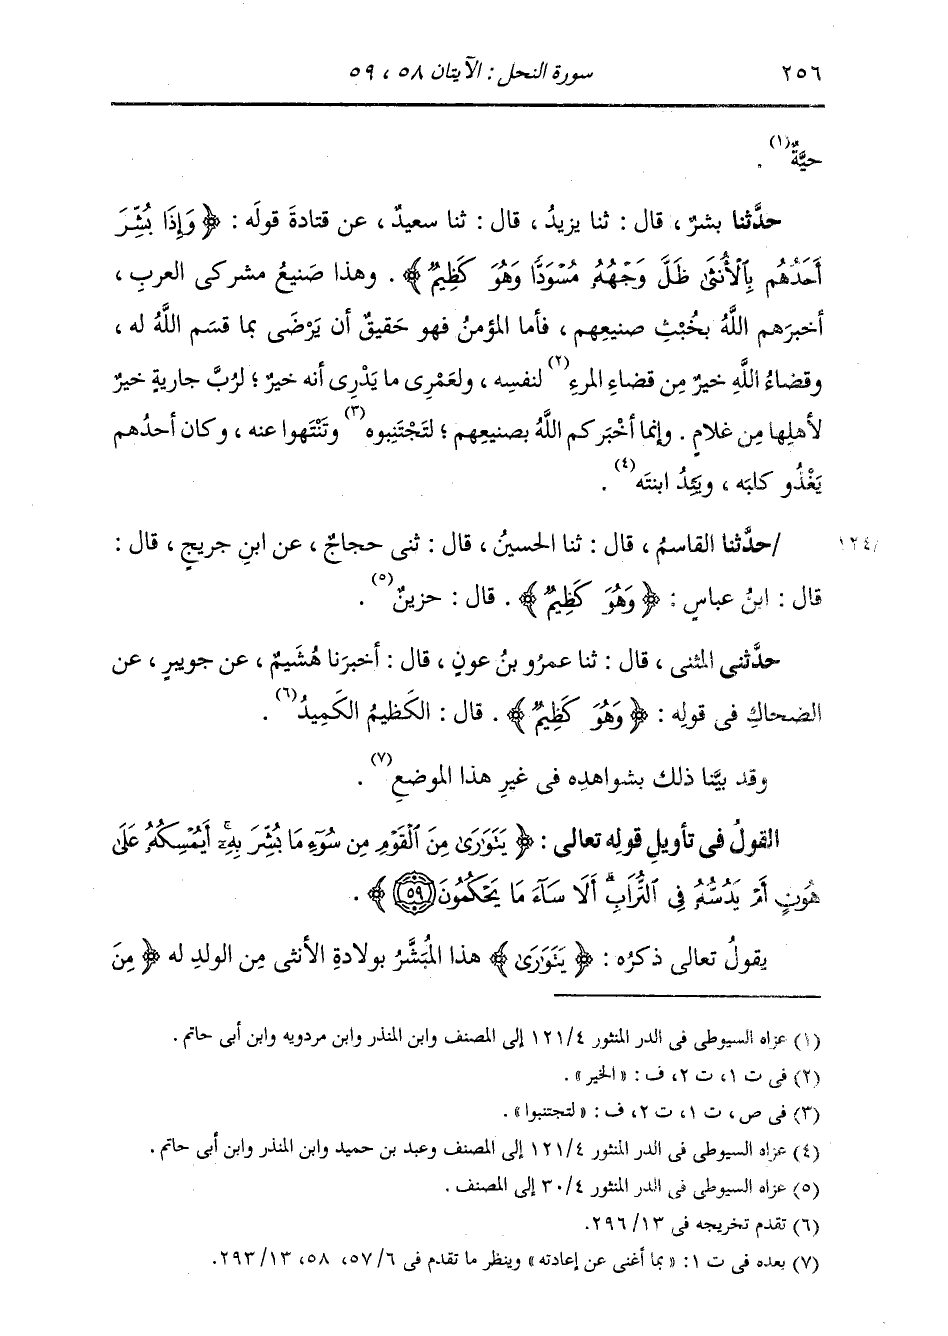 ٢٥٦ سورة النحل : الآيتان ٥٨ ، ٥٩
حيَّةٌ(١) .
حدَّثنا بشرٌ ، قال : ثنا يزيدُ ، قال : ثنا سعيدٌ ، عن قتادةَ قولَه : ﴿ وَإِذَا بُشِّرَ
أَحَدُهُم بِٱلْأُنثَىٰ ظَلَّ وَجْهُهُۥ مُسْوَدًّا وَهُوَ كَظِيمٌ ﴾ . وهذا صَنيعُ مشركى العربِ ،
أخبرَهم اللَّهُ بخُبْثِ صنيعِهم ، فأما المؤمنُ فهو حَقيقٌ أن يَرْضَى بما قسَم اللَّهُ له ،
وقضاءُ اللَّهِ خيرٌ مِن قضاءِ المرءِ(٢) لنفسِه ، ولعَمْرِى ما يَدْرِى أنه خيرٌ ؛ لرُبَّ جاريةٍ خيرٌ
لأهلِها مِن غلامٍ . وإنما أخْبَركم اللَّهُ بصنيعِهم ؛ لتَجْتَنِبوه(٣) وتَنْتَهوا عنه ، وكان أحدُهم
يَغْذُو كلبَه ، ويَئِدُ ابنتَه(٤) .
١٢٤/ /حدَّثنا القاسمُ ، قال : ثنا الحسينُ ، قال : ثنى حجاجٌ ، عن ابنِ جريجٍ ، قال :
قال : ابنُ عباسٍ : ﴿ وَهُوَ كَظِيمٌ ﴾ . قال : حزينٌ(٥) .
حدَّثنى المثنى ، قال : ثنا عمرُو بنُ عونٍ ، قال : أخبرَنا هُشَيمٌ ، عن جويبرٍ ، عن
الضحاكِ فى قولِه : ﴿ وَهُوَ كَظِيمٌ ﴾ . قال : الكَظيمُ الكَمِيدُ(٦) .
وقد بيَّنا ذلك بشواهدِه فى غيرِ هذا الموضعِ(٧) .
القولُ فى تأويلِ قولِه تعالى : ﴿ يَتَوَٰرَىٰ مِنَ ٱلْقَوْمِ مِن سُوٓءِ مَا بُشِّرَ بِهِۦٓ ۚ أَيُمْسِكُهُۥ عَلَىٰ
هُونٍ أَمْ يَدُسُّهُۥ فِى ٱلتُّرَابِ ۗ أَلَا سَآءَ مَا يَحْكُمُونَ ٥٩ ﴾ .
يقولُ تعالى ذكرُه : ﴿ يَتَوَٰرَىٰ ﴾ هذا المُبَشَّرُ بولادةِ الأنثى مِن الولدِ له ﴿ مِنَ
(١) عزاه السيوطى فى الدر المنثور ١٢١/٤ إلى المصنف وابن المنذر وابن مردويه وابن أبى حاتم .
(٢) فى ت ١، ت ٢، ف : « الخير » .
(٣) فى ص، ت ١، ت ٢، ف : « لتجتنبوا » .
(٤) عزاه السيوطى فى الدر المنثور ١٢١/٤ إلى المصنف وعبد بن حميد وابن المنذر وابن أبى حاتم .
(٥) عزاه السيوطى فى الدر المنثور ٣٠/٤ إلى المصنف .
(٦) تقدم تخريجه فى ٢٩٦/١٣.
(٧) بعده فى ت ١: « بما أغنى عن إعادته » وينظر ما تقدم فى ٥٧/٦، ٥٨، ٢٩٣/١٣.